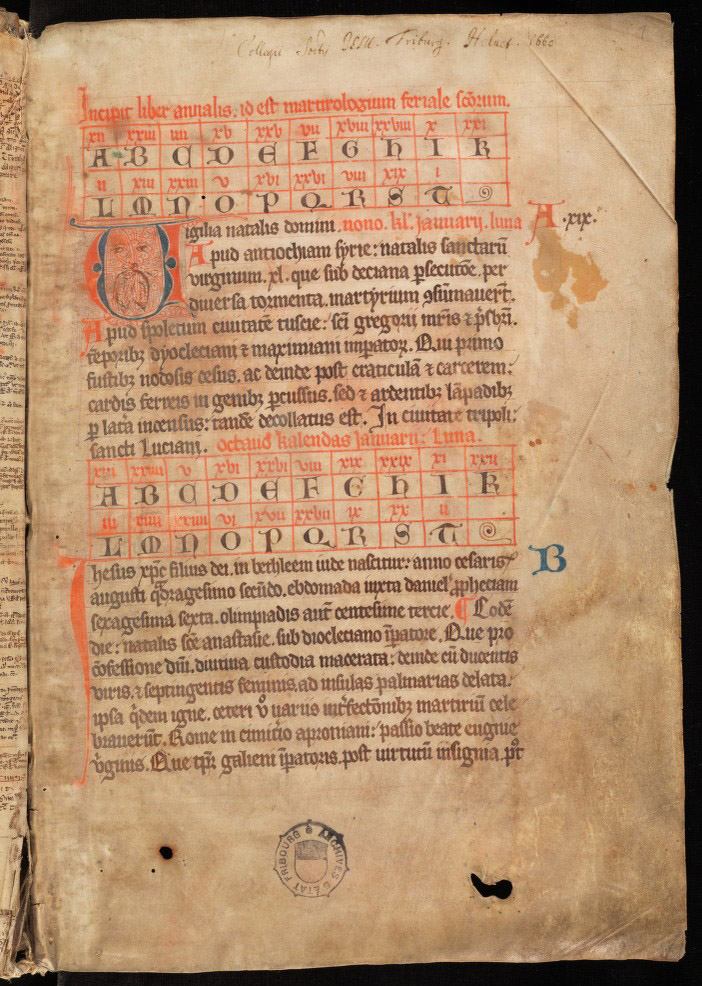 Collegii Soctis IESU. Friburg. Helvet. 1660
Incipit liber annalis. id est martirologium feriale scōrum.
xii xxiii iiii xv xxv vii xviii xxviii x xxi
A B C D E F G H I K
ii xiii xxiiii v xvi xxvi viii xix i
L M N O P Q R S T
Uigilia natalis domini. nono. kl' ianuarij. luna A .xix.
Apud antiochiam syrie: natalis sanctarū
virginum .xl. que sub deciana ꝑsecutōe. per
diuersa tormenta. martyrium ꝯsūmauerūt.
Apud spoletum ciuitatē tuscie: sci gregorii mr̄is ⁊ p̄sbr̄i.
tēporibꝫ dyocleciani ⁊ maximiani impatoꝝ. Qui primo
fustibꝫ nodosis cesus. ac deinde post craticulā ⁊ carcerem:
cardis ferreis in genibꝫ ꝑcussus. sed ⁊ ardentibꝫ lāpadibꝫ
ꝑ lat̄a incensus: tandē decollatus est. In ciuitate tripoli:
sancti Luciani. octauo kalendas ianuarii: Luna.
xiii xxiiii v xvi xxvi viii xix xxix xi xxii
A B C D E F G H I K
iii xiiii xxiiii vi xvii xxvii ix xx ii
L M N O P Q R S T
Ihesus xp̄c filius dei. in bethleem iude nascitur: anno cesaris B
augusti q̄dragesimo secūdo. ebdomada iuxta daniel' ꝓphetiam
sexagesima sexta. olimpiadis aut̄ centesime tercie. ¶ Eodē
die: natalis sc̄e anastasie. sub diocletiano īpatore. Que pro
cōfessione dn̄i. diutina custodia macerata: deinde cū ducentis
viris. ⁊ septingentis feminis. ad insulas palmarias delata.
ipsa q̄dem igne. ceteri v̊ uariis int̄fectōnibꝫ martiriū cele
brauerūt. Rome in cimit̄io aproniani: passio beate eugenie
v̄ginis. Que tp̄r galieni īpatoris. post uirtutū insignia. p̊t
ARCHIVES D'ETAT FRIBOURG